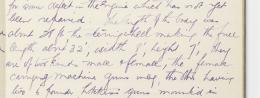 for some defect in the Engine which has not yet
been repaired. The length of the body was
about 25 ft the steering wheel making the full
length about 32', width 8', height 7', they
are of two kinds male & female, the female
carrying machine guns only, the other having
two 6 pounder Hotchkiss guns mounted in